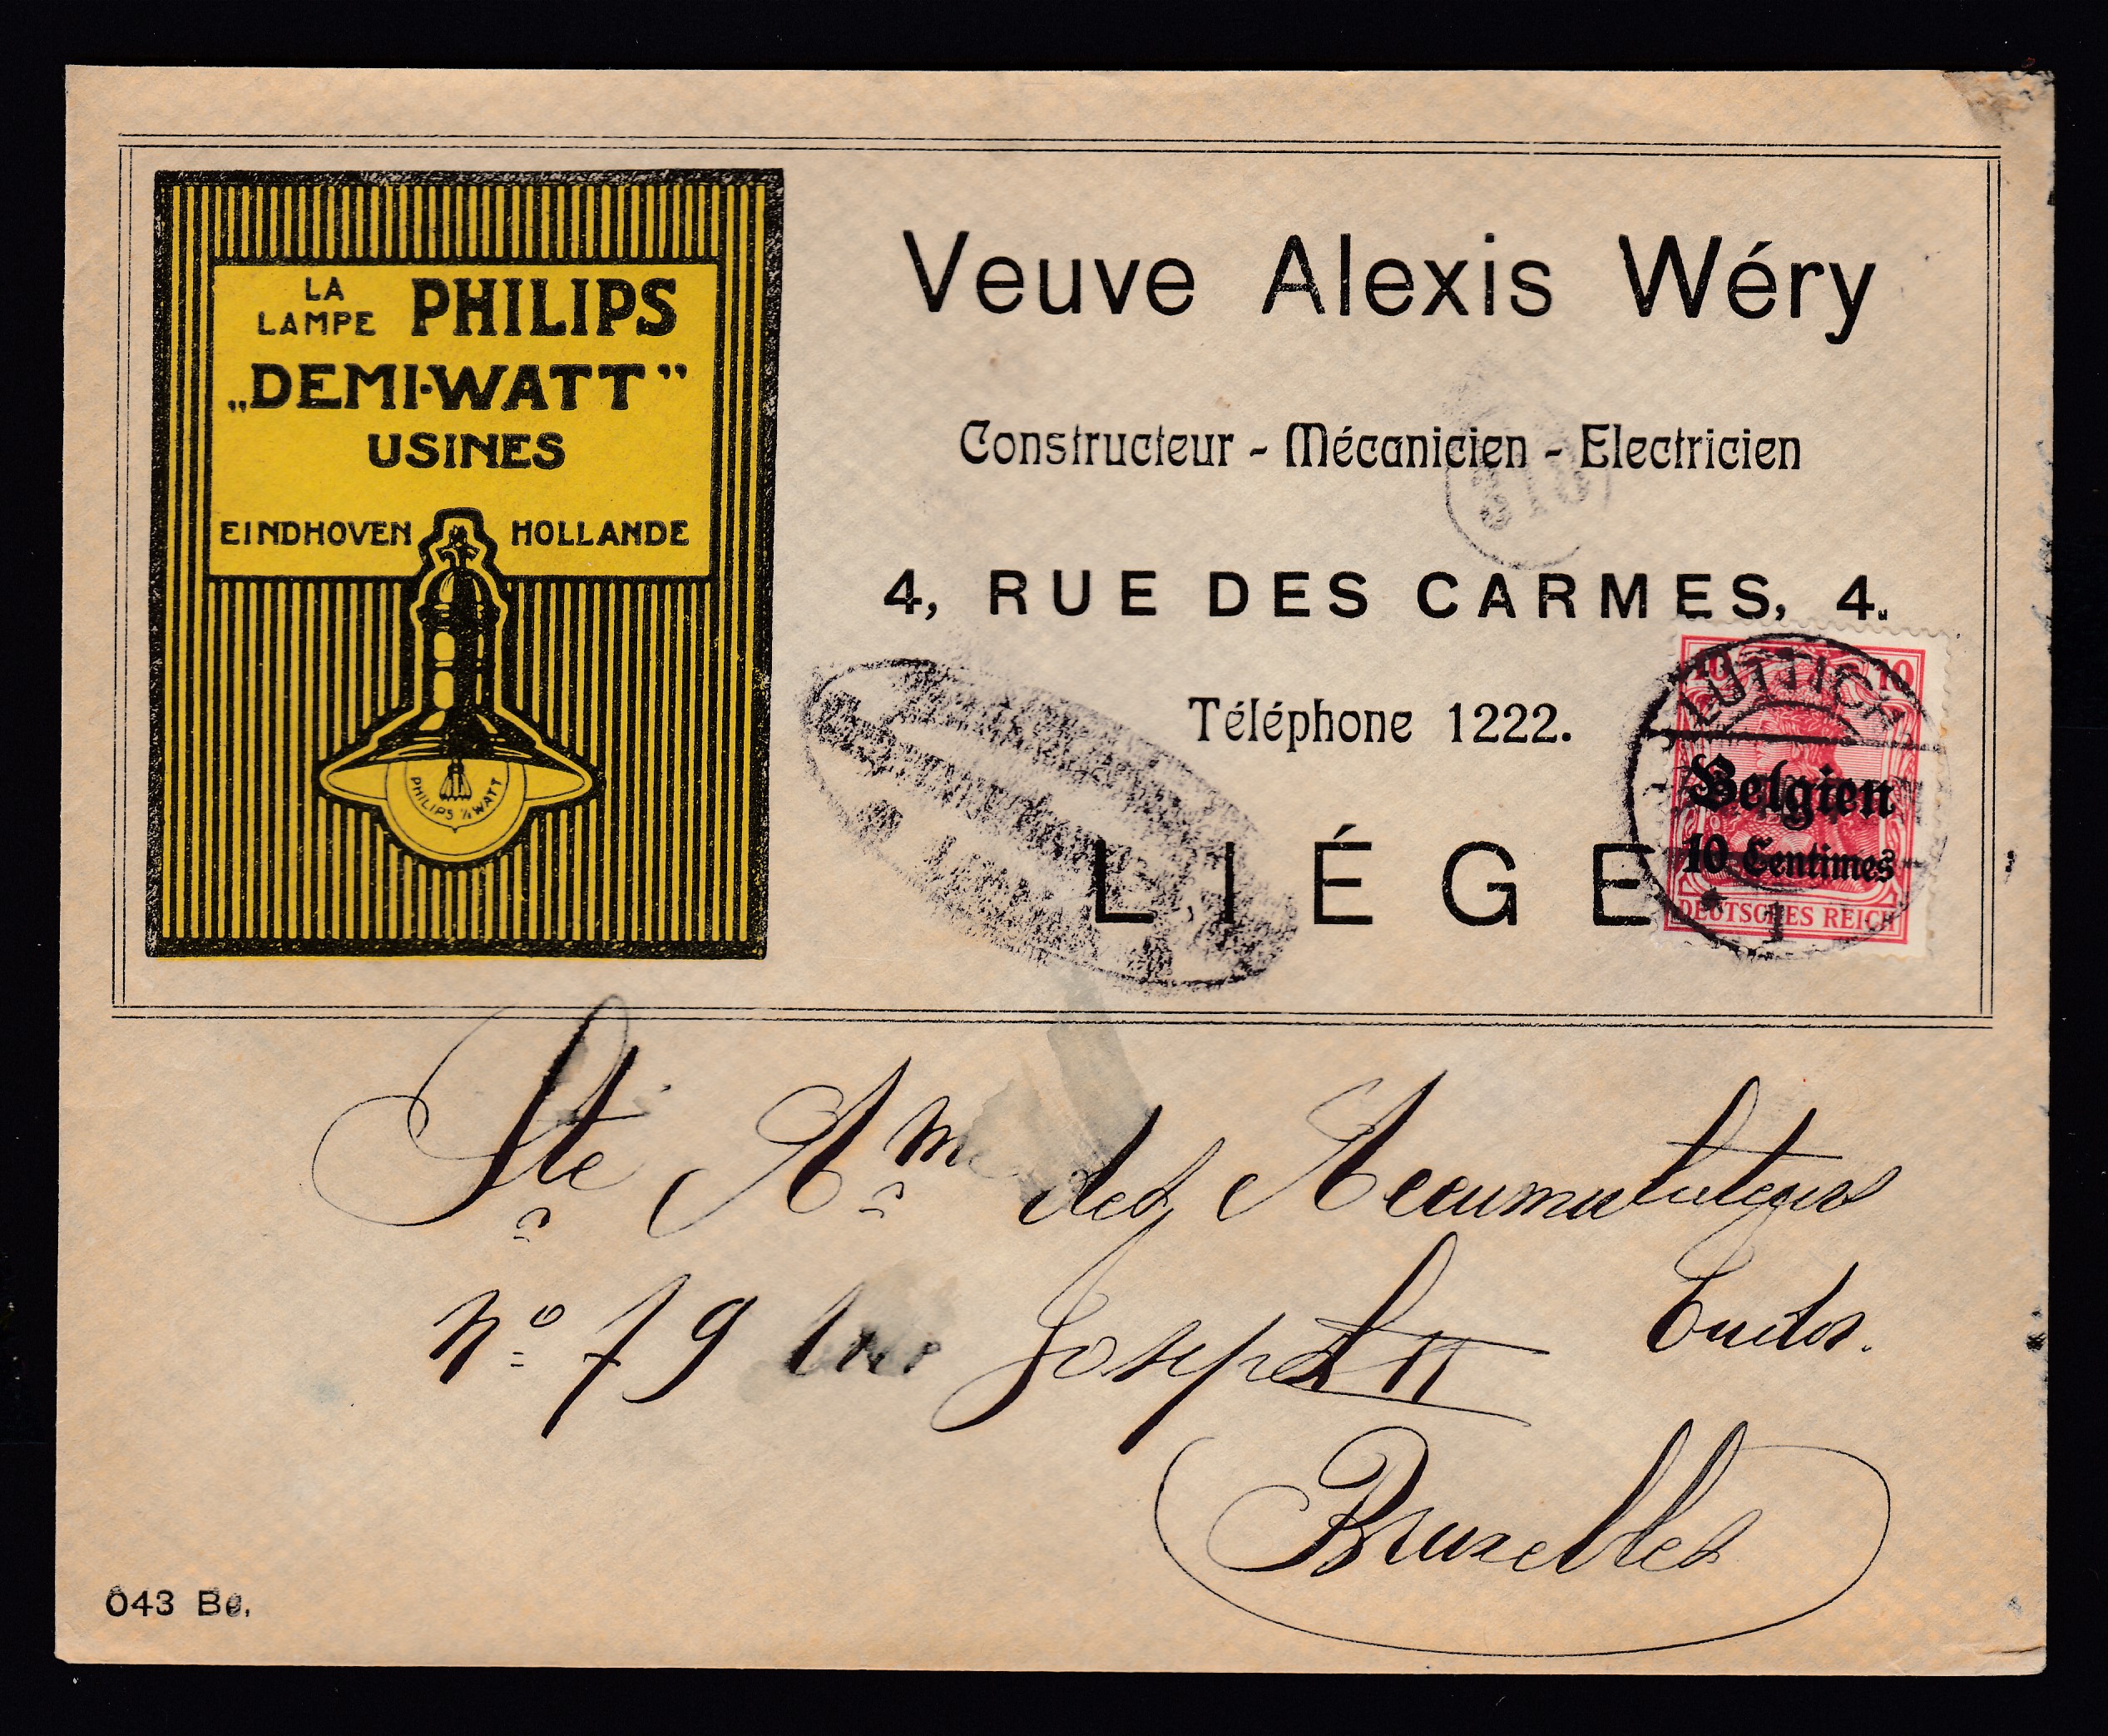 LA LAMPE PHILIPS
„DEMI-WATT”
USINES
EINDHOVEN HOLLANDE
PHILIPS ½ WATT
Veuve Alexis Wéry
Constructeur - Mécanicien - Electricien
310
4, RUE DES CARMES, 4.
Téléphone 1222.
LIÉGE
10 10
LÜTTICH
Belgien
10 Centimes
DEUTSCHES REICH
* 1
Sté Ame des Accumulateurs
No 79 rue Joseph II Tudor.
Bruxelles
043 Be.